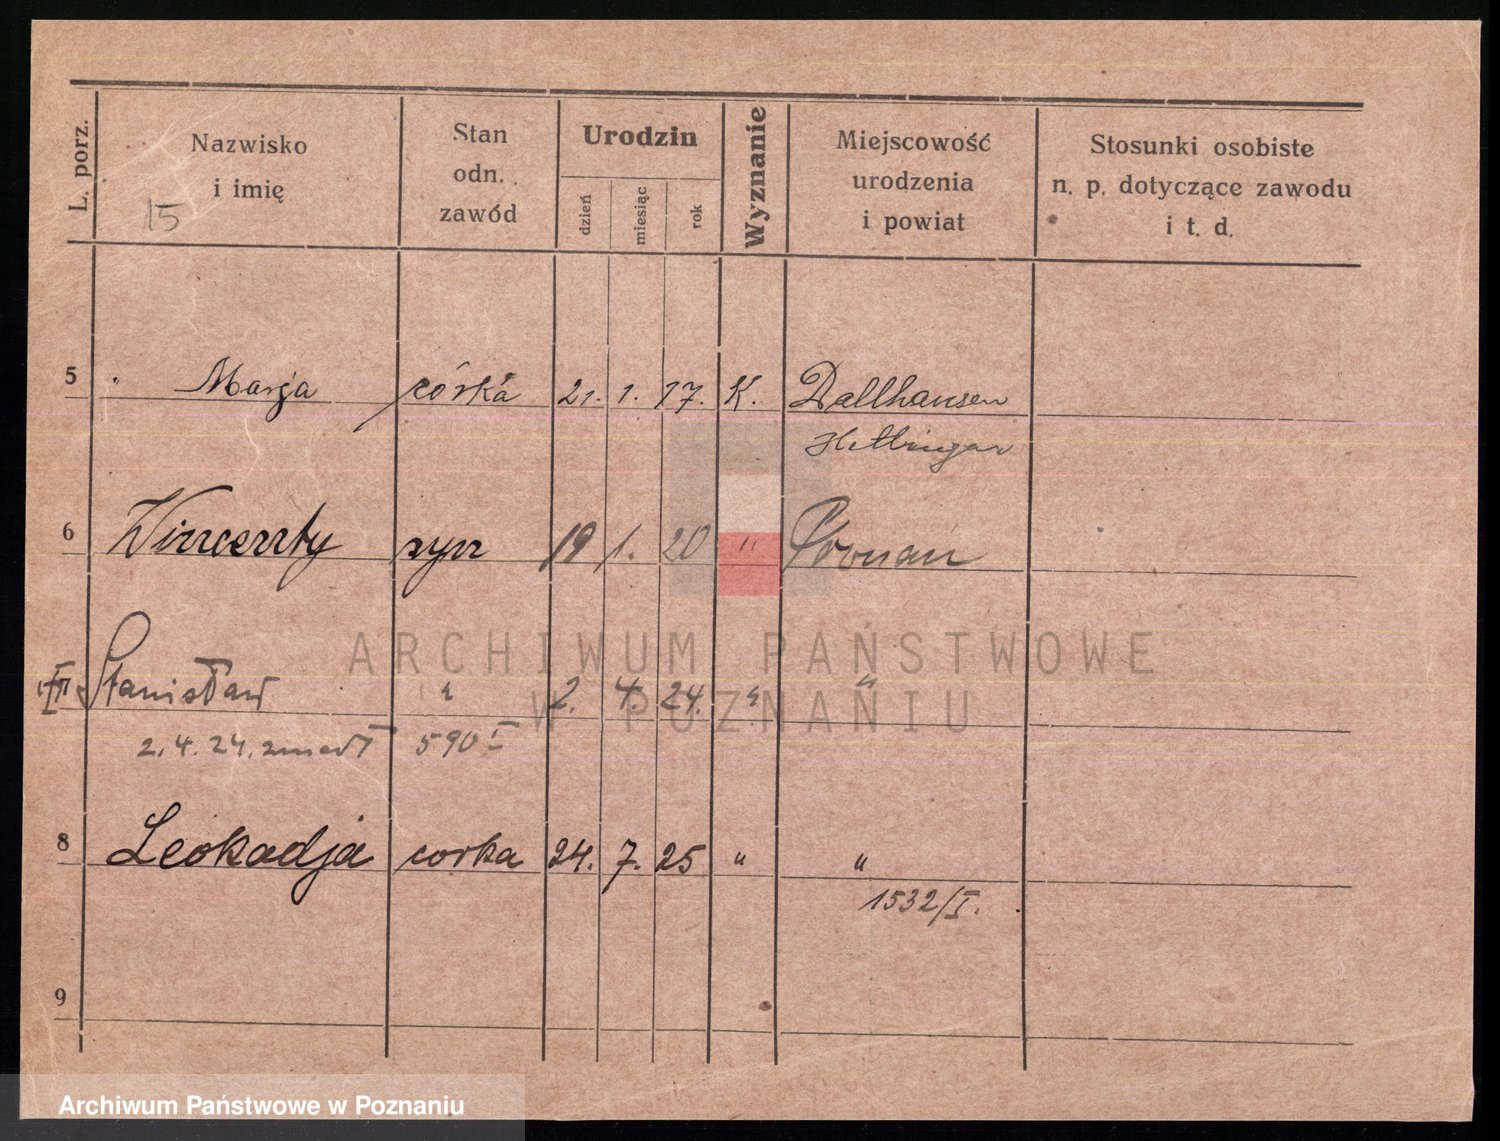 L. porz.
Nazwisko
i imię
15
Stan
odn.
zawód
Urodzin
dzień
miesiąc
rok
Wyznanie
Miejscowość
urodzenia
i powiat
Stosunki osobiste
n. p. dotyczące zawodu
i t. d.
5 " Marja córka 21. 1. 17. K. Dallhausen
6 Wincenty syn 19 1. 20 " Poznań
Stanisław " 2. 4. 24. " "
2. 4. 24. zmarł 590 I
8 Leokadja corka 24. 7. 25 " "
1532/I.
9
ARCHIWUM PAŃSTWOWE
W POZNANIU
Archiwum Państwowe w Poznaniu